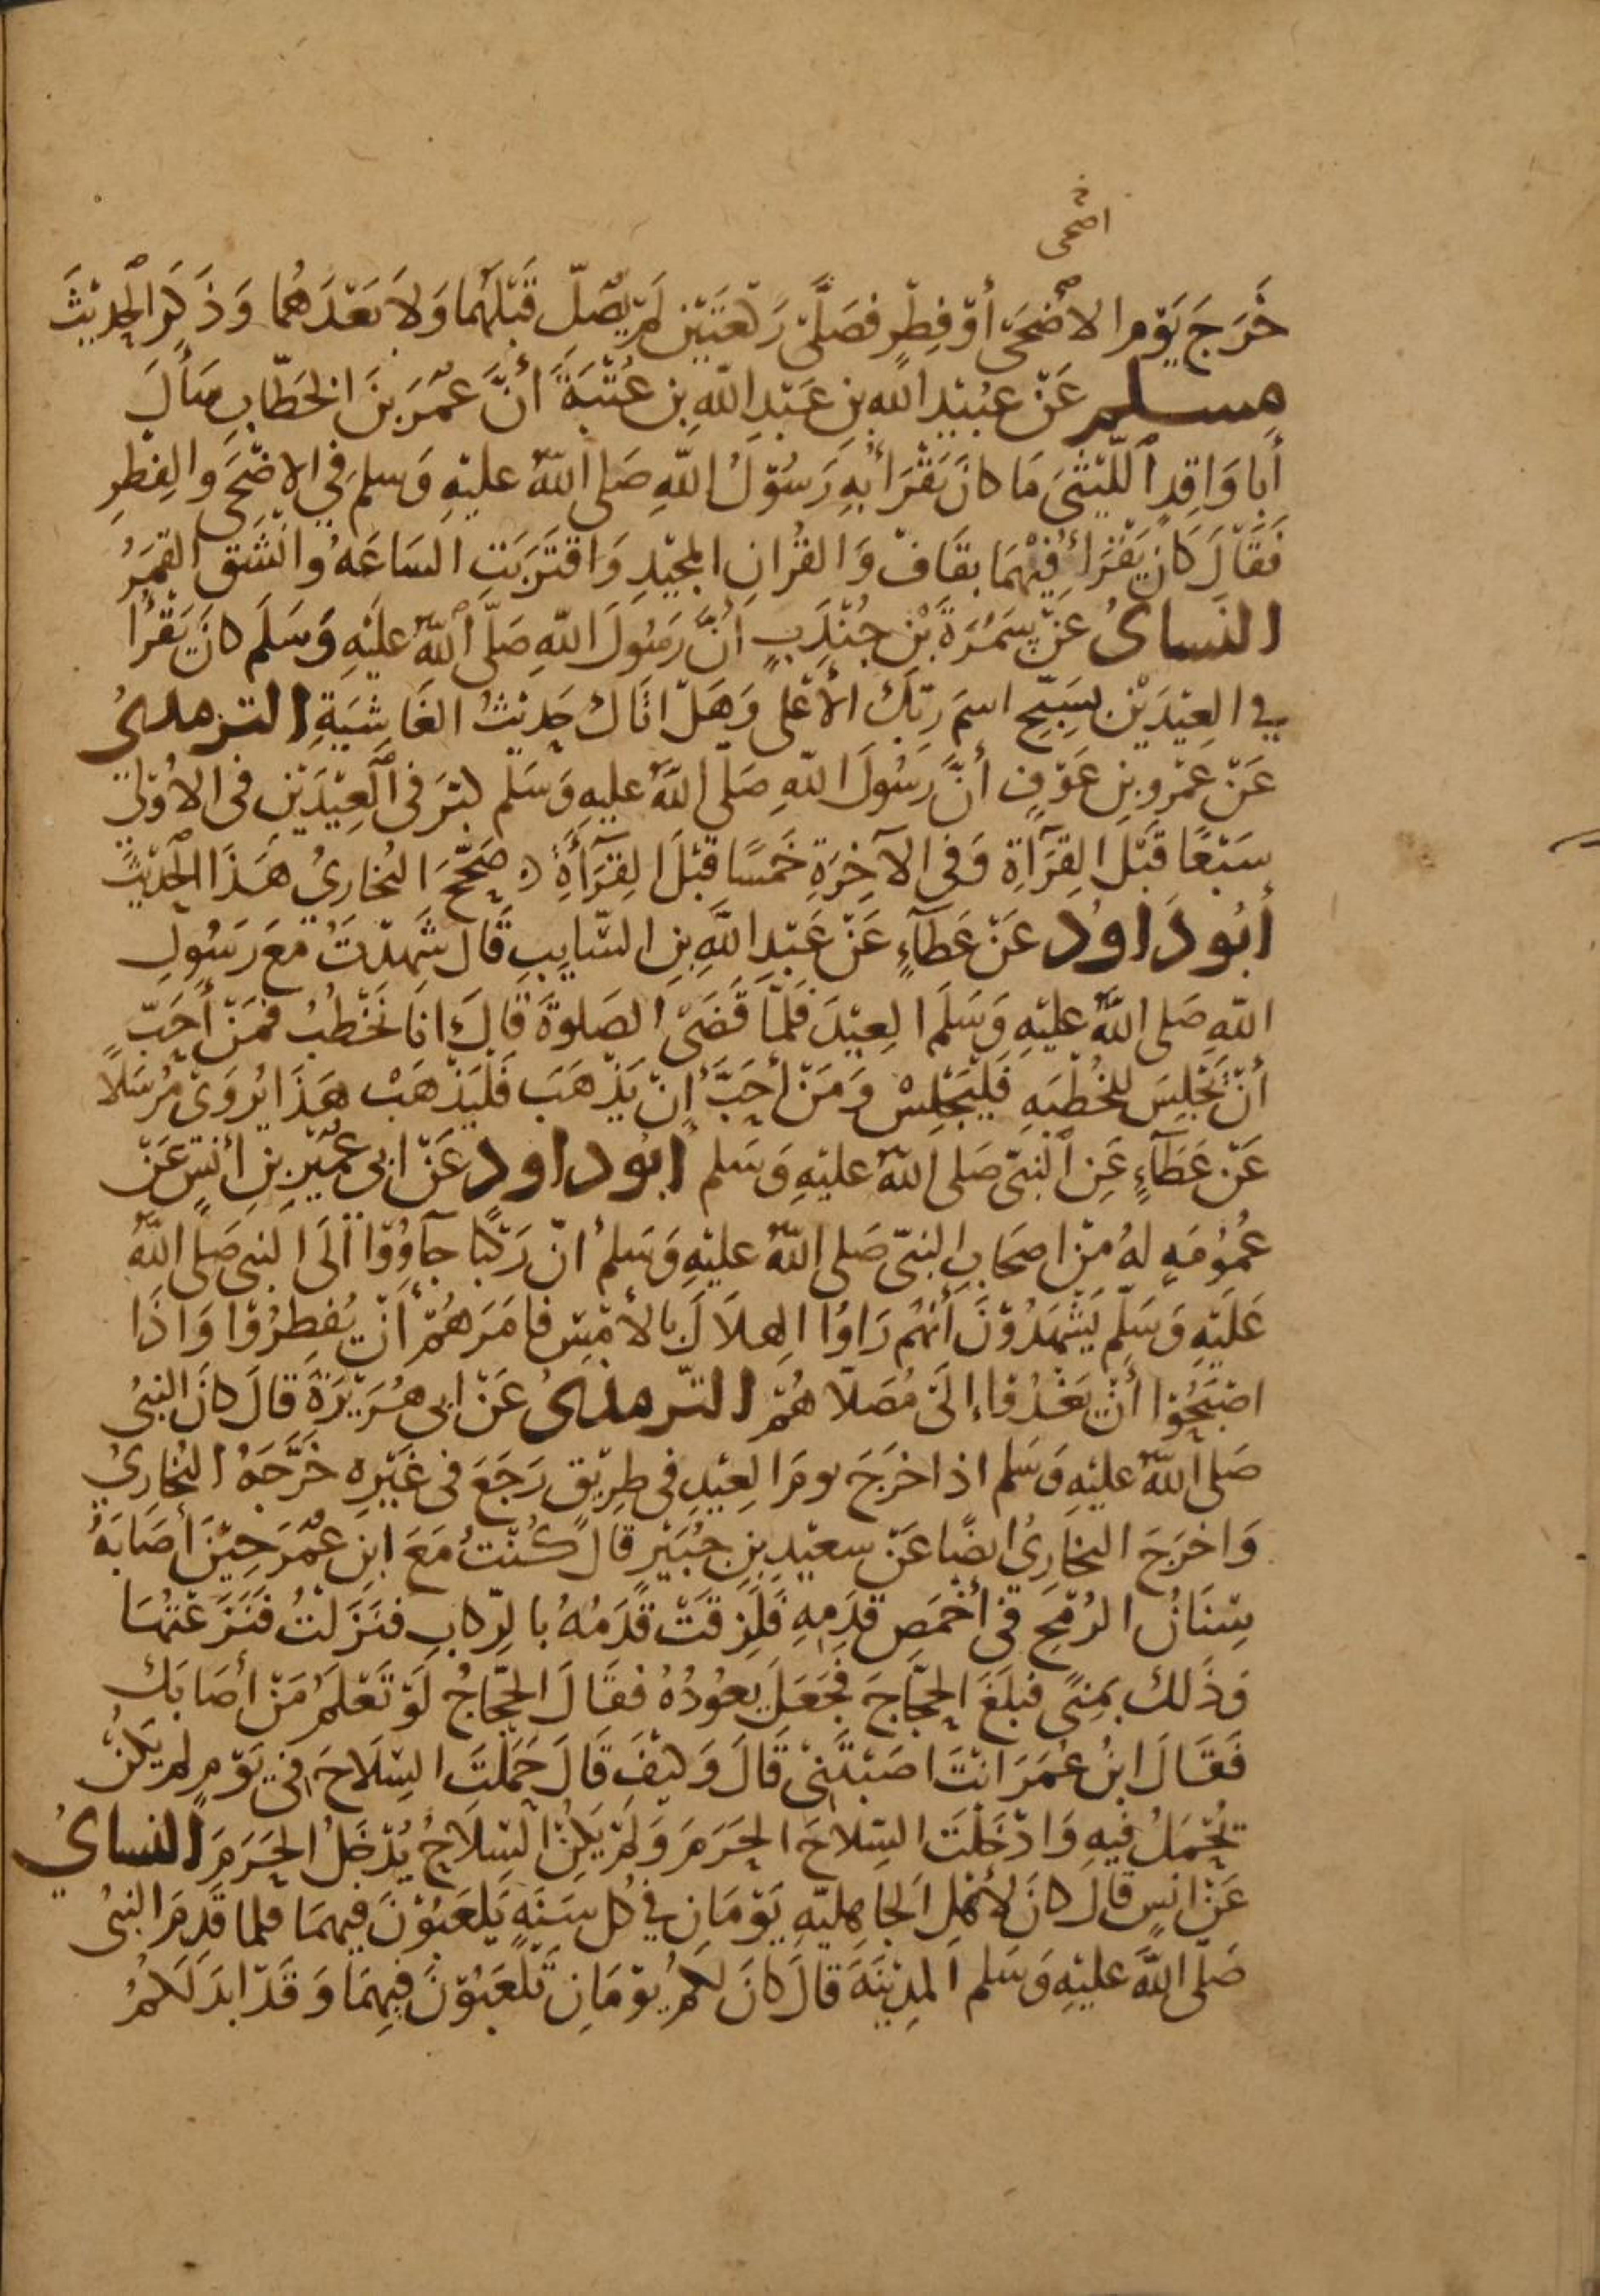 اضحى
خَرَجَ يَوْمَ الاَضْحَى أَوْ فِطْرٍ فَصَلَّى رَكْعَتَيْنِ لَمْ يُصَلِّ قَبْلَهُمَا وَلَا بَعْدَهُمَا وَذَكَرَ الْحَدِيْثَ
مسلم عَنْ عُبَيْدِ اللهِ بنِ عَبْدِ اللهِ بنِ عُتْبَةَ أَنَّ عُمَرَ بنَ الخَطَّابِ سَأَلَ
أَبَا وَاقِدٍ اللَّيْثَيَ مَا كَانَ يَقْرَأُ بِهِ رَسُوْلُ اللهِ صَلى اللهُ عليْهِ وَسلم فِي الاضْحَى وَالفِطْرِ
فَقَالَ كَانَ يَقْرَأُ فِيْهِمَا بِقَافْ وَالقُرانِ المَجِيْدِ وَاقْتَرَبَتِ السَاعَةُ وَانْشَق القَمَرُ
النساىُ عَنْ سَمُرَةَ بْنِ جُنْدَبٍ أَنَّ رَسُولَ اللهِ صَلَّى اللهُ عَليْهِ وَسَلَم كَانَ يَقْرَا
فِي العِيْدَيْنِ بِسَبِّحِ اسْمَ رَبِّكَ الأَعْلى وَهَلْ اتَاكَ حَدِيْثُ الغَاشِيَةِ الترمدىُ
عَنْ عَمْرِو بنِ عَوْفٍ أَنَّ رَسُولَ اللهِ صَلَّى اللهُ عليهِ وَسَلم كبَّرَ فِى الْعِيْدَيْنِ فِى الاُوْلَى
سَبْعًا قَبْلَ القِرَآةِ وَفِى الآخِرَةِ خَمْسًا قَبْلَ القِرَآةِ ه صَحَّحَ البُخارىُ هَذَا الْحَدِيْثَ
أبُو دَاوُد عَنْ عَطَآءٍ عَنْ عَبْدِ اللهِ بنِ السّايِبِ قَالَ شَهِدْتُ مَعَ رَسُولِ
اللهِ صَلى اللهُ عليْهِ وَسَلمَ العِيْدَ فَلَمَّا قَضَى الصَلوةَ قَالَ انَا نَخْطُبُ فَمَنْ أَحَبّ
أَنْ يَجْلِسَ لِلْخُطْبَهِ فَلْيَجْلِسْ وَمَنْ أَحَبَّ أَنْ يَذْهَبَ فَلْيَذْهَبْ هَذَا يُرْوَى مُرْسَلًا
عَنْ عَطَآءٍ عَنِ النَّبىّ صَلى اللهُ عليْهِ وَسَلم أبُو داود عَنْ ابِي عُمَيْرِ بنِ أَنَسٍ عَنْ
عُمُوْمَهٍ لهُ مِنْ اصحَابِ النبىّ صَلى اللهُ عليْهِ وَسَلم أنّ رَكْبًا جآوُوْا الَى النبى صَلى اللهُ
عَلَيْهِ وَسَلَّمَ يَشْهَدُوْنَ أَنهُم رَاوُا الهِلَالَ بالأمْسِ فامَرَهُمْ أَنْ يُفْطِرُوْا وَاذَا
اصْبَحُوْا أَنْ يَغْدُوْا إلَى مُصَلَّاهُمْ الترمدىُ عَنْ ابى هُرَيْرَةَ قَالَ كَانَ النبىُ
صَلى اللهُ عليْهِ وَسَلم اذا خرَجَ يومَ العِيْدِ فى طرِيْقٍ رَجَعَ فى غَيْرِهِ خَرَّجَهُ البُخارِىُ
وَاخرَجَ البخَارِىُ ايضًا عَنْ سعيْدِ بنِ جُبَيْرٍ قالَ كُنْتُ مَعَ ابنِ عُمَرَ حِيْنَ أَصَابَهُ
سِنَانُ الرُمْحِ فِى أَخْمَصِ قدَمِهِ فَلَزِقَتْ قَدَمُهُ بالرِّكابِ فَنَزَلْتُ فَنَزَعْتُهَا
وَذَلكَ بمِنًى فبلَغَ الحجَّاجَ فَجَعَلَ يَعُوْدُهُ فقَالَ الحجّاجُ لَوْ نَعْلَمُ مَنْ أَصَابَكَ
فَقَالَ ابنُ عُمَرَ انْتَ اصَبْتَنِىْ قَالَ وَكيْفَ قَالَ حَمَلْتَ السِّلَاحَ فِي يَوْمٍ لم يَكنْ
يُحْمَلُ فيهِ وَادْخَلْتَ السّلاحَ الحَرَمَ وَلَمْ يَكنْ السّلَاحُ يُدْخَلُ الحَرَمَ النساىُ
عَنْ انسٍ قَالَ كانَ لأَهْلِ الجاهِليّهِ يَوْمَانِ فِي كُل سَنَهٍ يَلعَبُوْنَ فِيهِمَا فلما قَدِمَ النبىُ
صَلّى اللهُ عليْهِ وَسَلم المدِيْنَهَ قَالَ كَانَ لكمُ يوْمَانِ تَلْعَبُوْنَ فِيهِمَا وَقَدْ ابدَلَكمُ